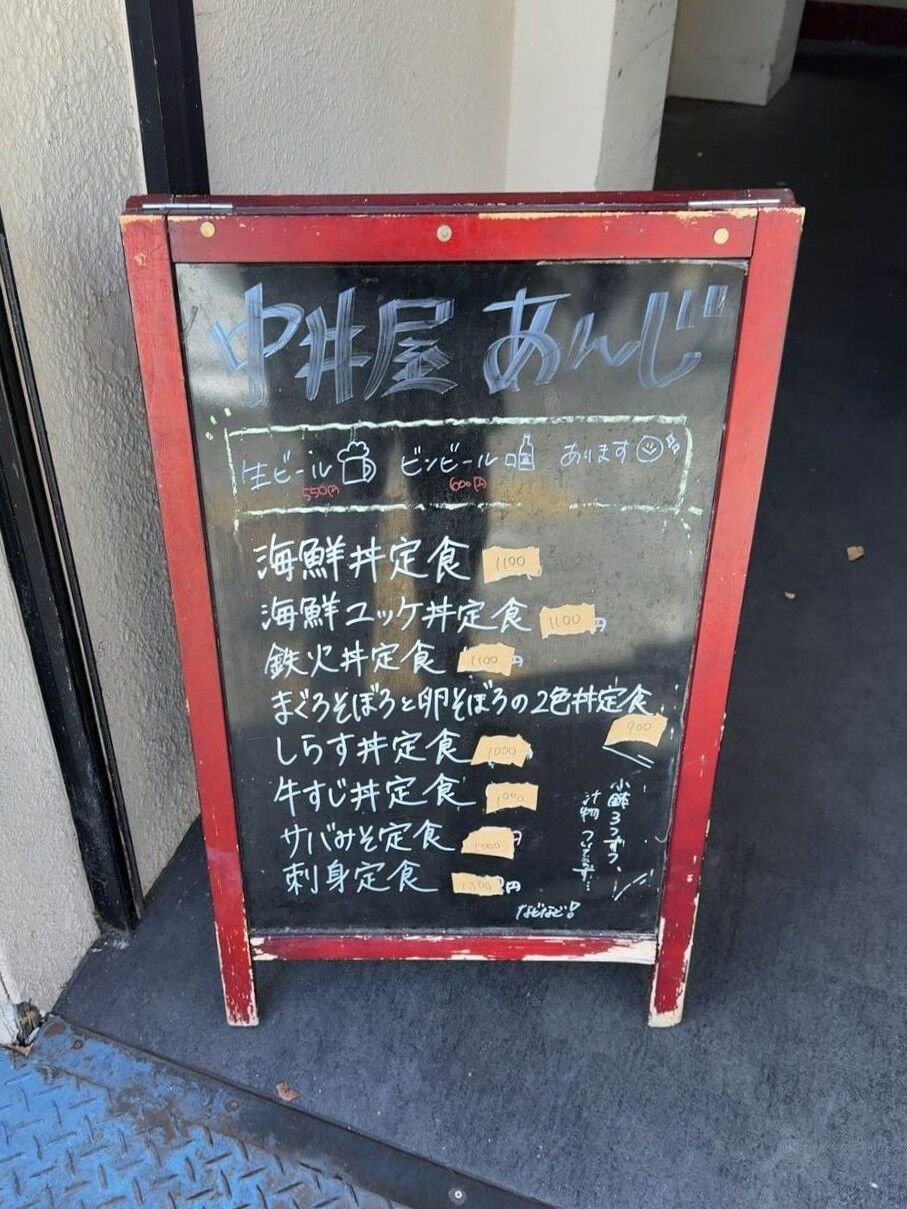 中丼屋 あんじ
生ビール ビンビール あります
550円 600円
海鮮丼定食 1100
海鮮ユッケ丼定食 1100円
鉄火丼定食 1100円
まぐろそぼろと卵そぼろの2色丼定食
900
しらす丼定食 1000
牛すじ丼定食 1000
サバみそ定食 1000円
刺身定食 1300円
小鉢3つずつ
汁物ついてます…
などなど!